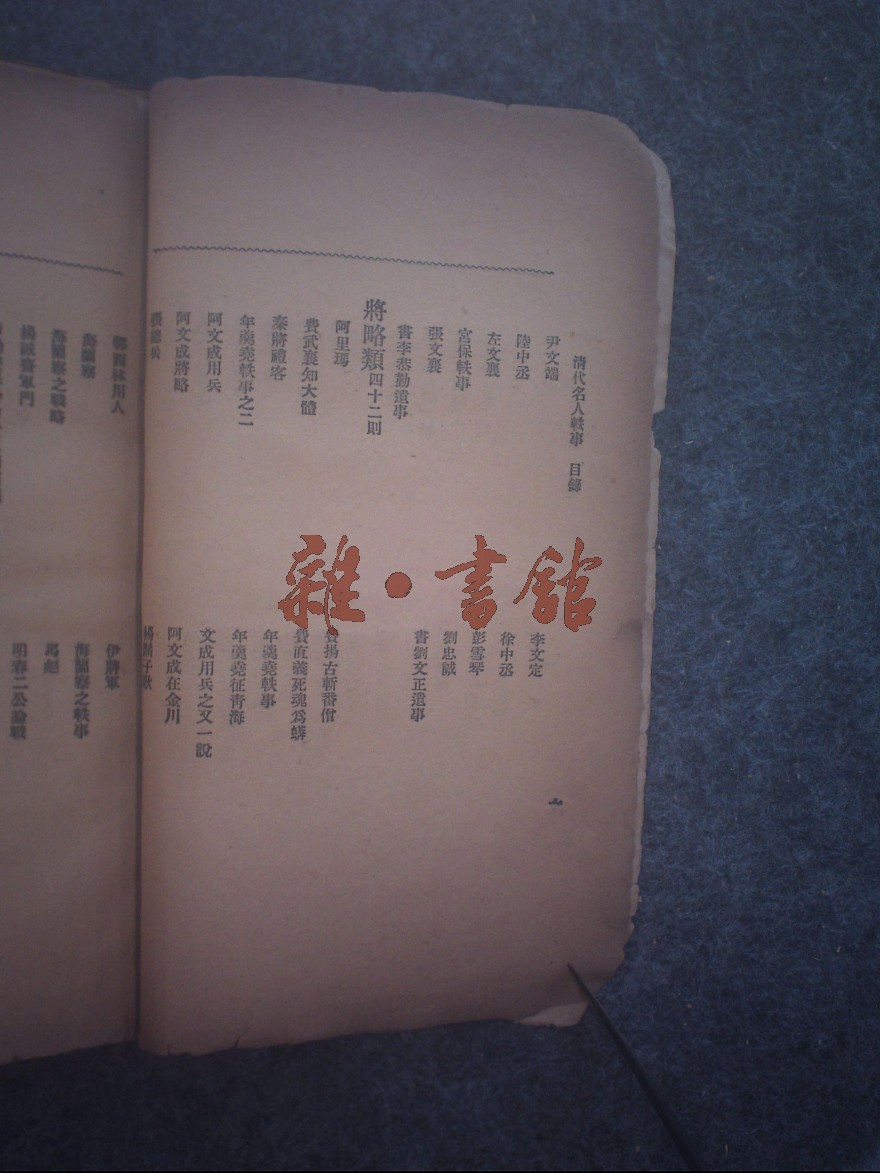 清代名人軼事　目錄
尹文端
李文定
陸中丞
徐中丞
左文襄
彭雪琴
宮保軼事
劉忠誠
張文襄
書劉文正遺事
書李恭勤遺事
將略類四十二則
阿里瑪
費揚古斬番僧
費武襄知大體
費直義死魂爲蟒
秦將禮客
年羹堯軼事
年羹堯軼事之二
年羹堯征青海
阿文成用兵
文成用兵之又一說
阿文成將略
阿文成在金川
張總兵
鄂西林用人
伊將軍
海蘭察
海蘭察之軼事
海蘭察之戰略
馬彪
楊誠齋軍門
明春二公論戰
七
雜·書館